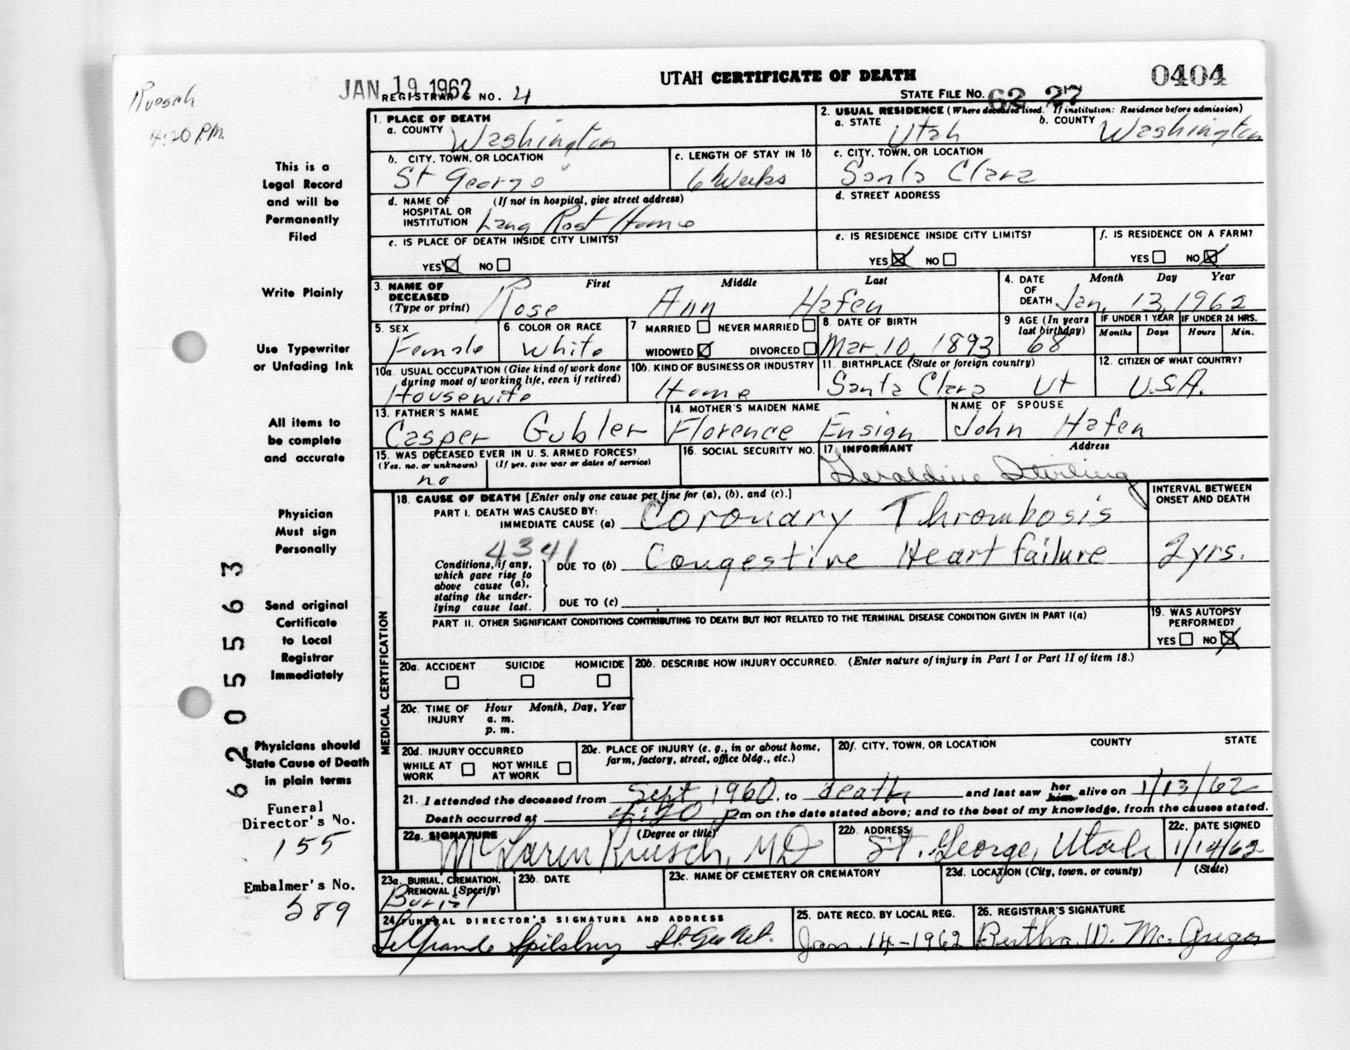 Ruesch
4:20 P.M.
JAN 19 1962
UTAH CERTIFICATE OF DEATH
0404
REGISTRAR'S NO. 4
STATE FILE NO. 62 27
1. PLACE OF DEATH
a. COUNTY Washington
2. USUAL RESIDENCE (Where deceased lived. If institution: Residence before admission)
a. STATE Utah b. COUNTY Washington
b. CITY, TOWN, OR LOCATION St George
c. LENGTH OF STAY IN 1b 6 Weeks
c. CITY, TOWN, OR LOCATION Santa Clara
d. NAME OF HOSPITAL OR INSTITUTION (If not in hospital, give street address) Lang Rest Home
d. STREET ADDRESS
e. IS PLACE OF DEATH INSIDE CITY LIMITS?
YES NO
e. IS RESIDENCE INSIDE CITY LIMITS?
YES NO
f. IS RESIDENCE ON A FARM?
YES NO
3. NAME OF DECEASED (Type or print) First Middle Last
Rose Ann Hafen
4. DATE OF DEATH Month Day Year
Jan. 13, 1962
5. SEX Female
6. COLOR OR RACE White
7 MARRIED NEVER MARRIED
WIDOWED DIVORCED
8. DATE OF BIRTH Mar. 10, 1893
9 AGE (In years last birthday) 68
IF UNDER 1 YEAR Months Days
IF UNDER 24 HRS. Hours Min.
10a. USUAL OCCUPATION (Give kind of work done during most of working life, even if retired) Housewife
10b. KIND OF BUSINESS OR INDUSTRY Home
11. BIRTHPLACE (State or foreign country) Santa Clara Ut
12. CITIZEN OF WHAT COUNTRY? U.S.A.
13. FATHER'S NAME Casper Gubler
14. MOTHER'S MAIDEN NAME Florence Ensign
NAME OF SPOUSE John Hafen
15. WAS DECEASED EVER IN U.S. ARMED FORCES?
(Yes, no, or unknown) (If yes, give war or dates of service)
no
16. SOCIAL SECURITY NO.
17. INFORMANT Address
Geraldine Stirling
18. CAUSE OF DEATH [Enter only one cause per line for (a), (b), and (c).]
INTERVAL BETWEEN ONSET AND DEATH
PART I. DEATH WAS CAUSED BY:
IMMEDIATE CAUSE (a) Coronary Thrombosis
4341
Conditions, if any, which gave rise to above cause (a), stating the underlying cause last.
DUE TO (b) Congestive Heart failure 2 yrs.
DUE TO (c)
PART II. OTHER SIGNIFICANT CONDITIONS CONTRIBUTING TO DEATH BUT NOT RELATED TO THE TERMINAL DISEASE CONDITION GIVEN IN PART I(a)
19. WAS AUTOPSY PERFORMED?
YES NO
MEDICAL CERTIFICATION
20a. ACCIDENT SUICIDE HOMICIDE
20b. DESCRIBE HOW INJURY OCCURRED. (Enter nature of injury in Part I or Part II of item 18.)
20c. TIME OF INJURY Hour Month, Day, Year
a. m.
p. m.
20d. INJURY OCCURRED
WHILE AT WORK NOT WHILE AT WORK
20e. PLACE OF INJURY (e. g., in or about home, farm, factory, street, office bldg., etc.)
20f. CITY, TOWN, OR LOCATION COUNTY STATE
21. I attended the deceased from Sept 1960, to death and last saw her him alive on 1/13/62
Death occurred at 4:20 Pm on the date stated above; and to the best of my knowledge, from the causes stated.
22a. SIGNATURE (Degree or title)
McLaren Ruesch, MD
22b. ADDRESS St. George, Utah
22c. DATE SIGNED 1/14/62
23a. BURIAL, CREMATION, REMOVAL (Specify) Burial
23b. DATE
23c. NAME OF CEMETERY OR CREMATORY
23d. LOCATION (City, town, or county) (State)
24. FUNERAL DIRECTOR'S SIGNATURE AND ADDRESS
LeGrande Spilsbury St. Geo Ut.
25. DATE RECD. BY LOCAL REG. Jan. 14-1962
26. REGISTRAR'S SIGNATURE Bertha W. McGregor
This is a
Legal Record
and will be
Permanently
Filed
Write Plainly
Use Typewriter
or Unfading Ink
All items to
be complete
and accurate
Physician
Must sign
Personally
Send original
Certificate
to Local
Registrar
Immediately
Physicians should
State Cause of Death
in plain terms
Funeral
Director's No.
155
Embalmer's No.
589
6205563